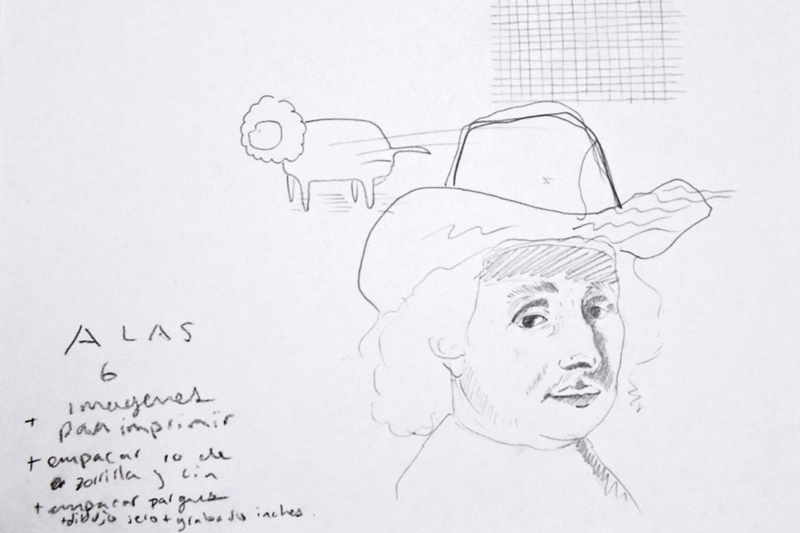 A LAS
6
imagenes
+ para imprimir
+ empacar 10 de
zorrilla y
+ empacar parques
+ dibujo + grabado inches.